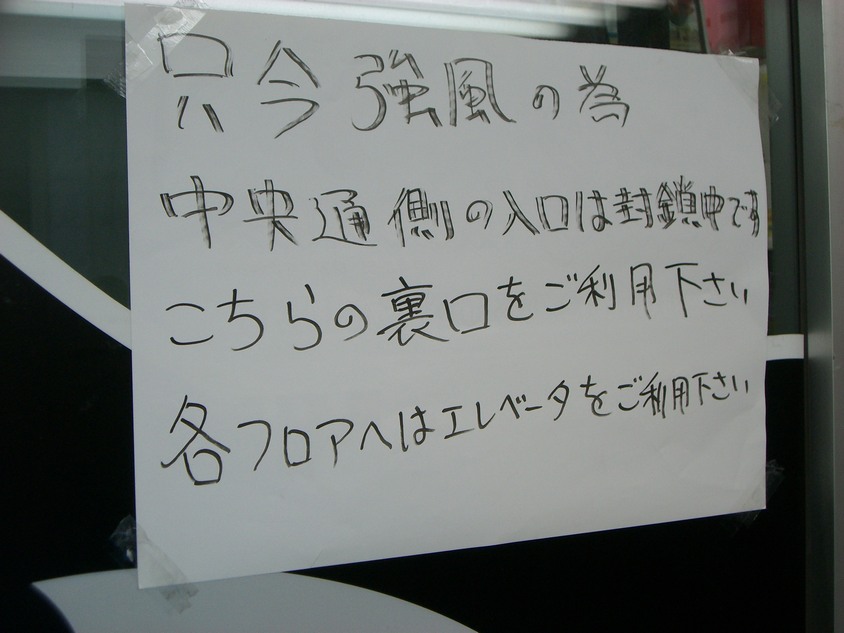 只今強風の為
中央通側の入口は封鎖中です
こちらの裏口をご利用下さい
各フロアへはエレベータをご利用下さい